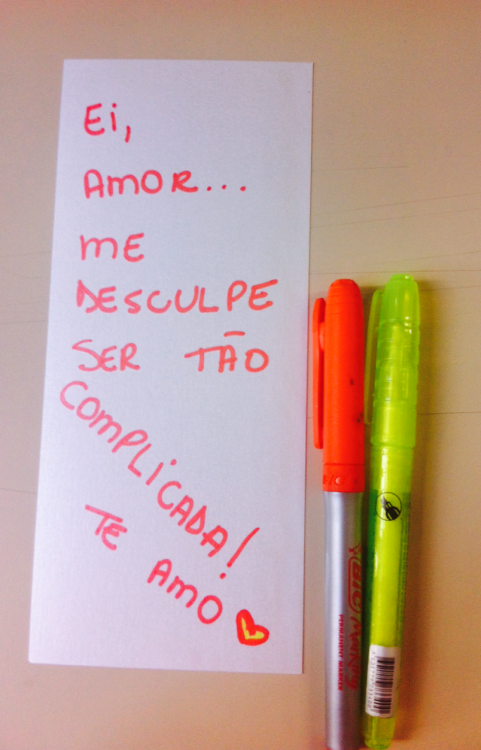 Ei,
AMOR...
ME
DESCULPE
SER TÃO
COMPLICADA!
TE AMO
BIC MARKING
PERMANENT MARKER